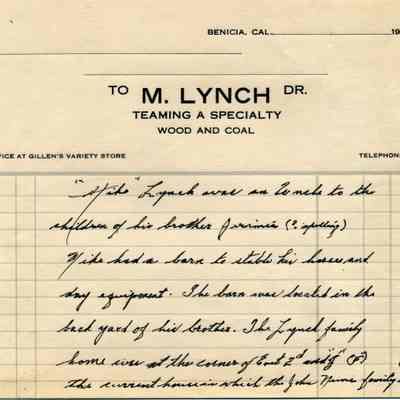 BENICIA, CAL. 19
TO M. LYNCH DR.
TEAMING A SPECIALTY
WOOD AND COAL
FICE AT GILLEN'S VARIETY STORE TELEPHONE
"Mike" Lynch was an Uncle to the
children of his brother Jerimia (? spelling)
Mike had a barn to stable his horses and
dray equipment. The barn was located in the
back yard of his brother. The Lynch family
home was at the corner of East 2d and "J" (?)
the current house in which the John family